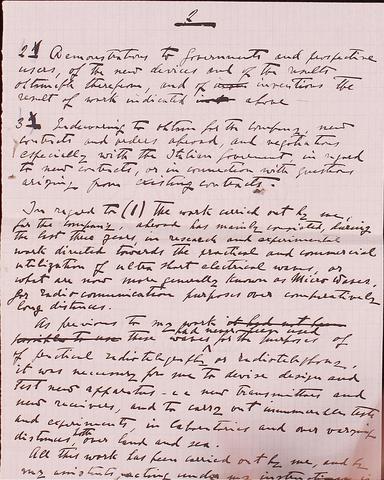 2
2) Demonstrations to Governments and prospective
users, of the new devices and of the results
obtainable therefrom, and of inventions the
result of work indicated above
3) Endeavouring to obtain for the company new
contracts and orders abroad, and negotiations
especially with the Italian Government, in regard
to new contracts, or in connection with questions
arising from existing contracts.
In regard to (1) The work carried out by me,
for the company, abroad has mainly consisted, during
the last three years, in research and experimental
work directed towards the practical and commercial
utilization of ultra short electrical waves, or
what are now more generally known as Micro Waves,
for radiocommunication purposes over comparatively
long distances.
As previous to my work it had not been
possible to use these had never been used waves for the purposes of
of practical radiotelegraphy or radiotelephony,
it was necessary for me to devise design and
test new apparatus - i.e new transmitters and
new receivers, and to carry out innumerable tests
and experiments, in laboratories and over varying
distances, both over land and sea.
All this work has been carried out by me, and by
my assistants acting under my instructions